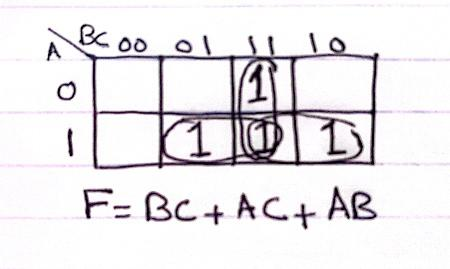 A BC 00 01 11 10
0 1
1 1 1 1
F = BC + AC + AB